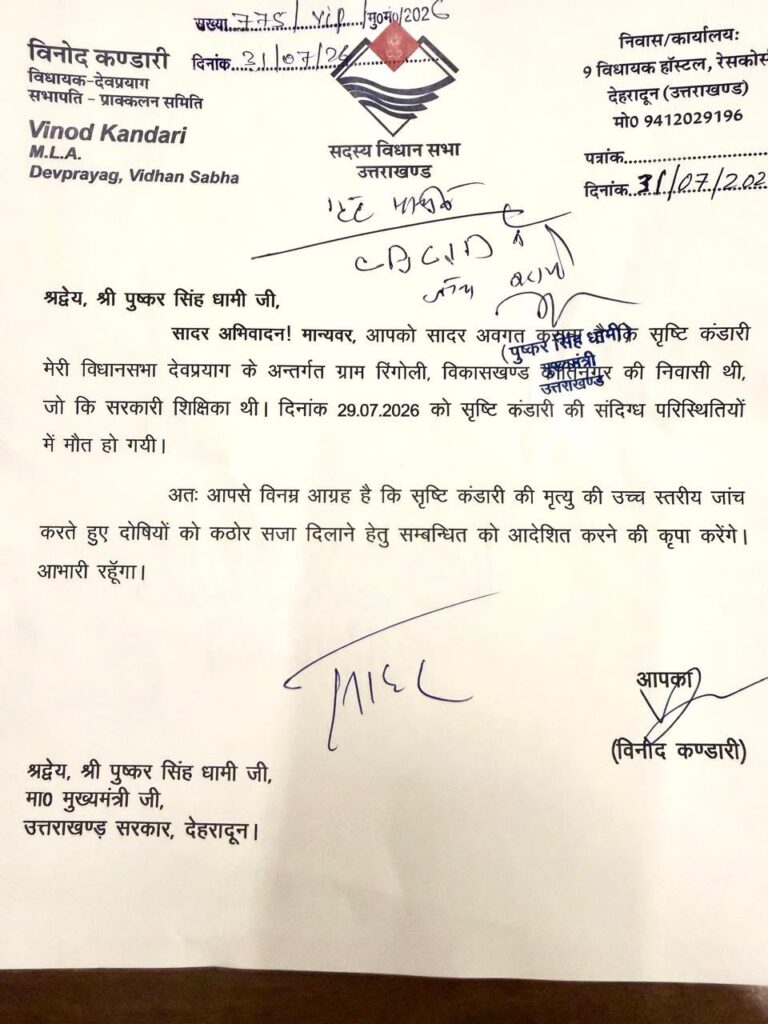 संख्या 775/Vip/मु0मं0/2026
दिनांक 31/07/26
विनोद कण्डारी
विधायक-देवप्रयाग
सभापति - प्राक्कलन समिति
Vinod Kandari
M.L.A.
Devprayag, Vidhan Sabha
सदस्य विधान सभा
उत्तराखण्ड
निवास/कार्यालयः
9 विधायक हॉस्टल, रेसकोर्स
देहरादून (उत्तराखण्ड)
मो0 9412029196
पत्रांक
दिनांक 31/07/202
CBCID
जाँच
श्रद्वेय, श्री पुष्कर सिंह धामी जी,
सादर अभिवादन! मान्यवर, आपको सादर अवगत कि सृष्टि कंडारी
मेरी विधानसभा देवप्रयाग के अन्तर्गत ग्राम रिंगोली, विकासखण्ड कीर्तिनगर की निवासी थी,
जो कि सरकारी शिक्षिका थी। दिनांक 29.07.2026 को सृष्टि कंडारी की संदिग्ध परिस्थितियों
में मौत हो गयी।
(पुष्कर सिंह धामी)
मुख्यमंत्री
उत्तराखण्ड
अतः आपसे विनम्र आग्रह है कि सृष्टि कंडारी की मृत्यु की उच्च स्तरीय जांच
करते हुए दोषियों को कठोर सजा दिलाने हेतु सम्बन्धित को आदेशित करने की कृपा करेंगे।
आभारी रहूँगा।
आपका
(विनोद कण्डारी)
श्रद्वेय, श्री पुष्कर सिंह धामी जी,
मा0 मुख्यमंत्री जी,
उत्तराखण्ड़ सरकार, देहरादून।